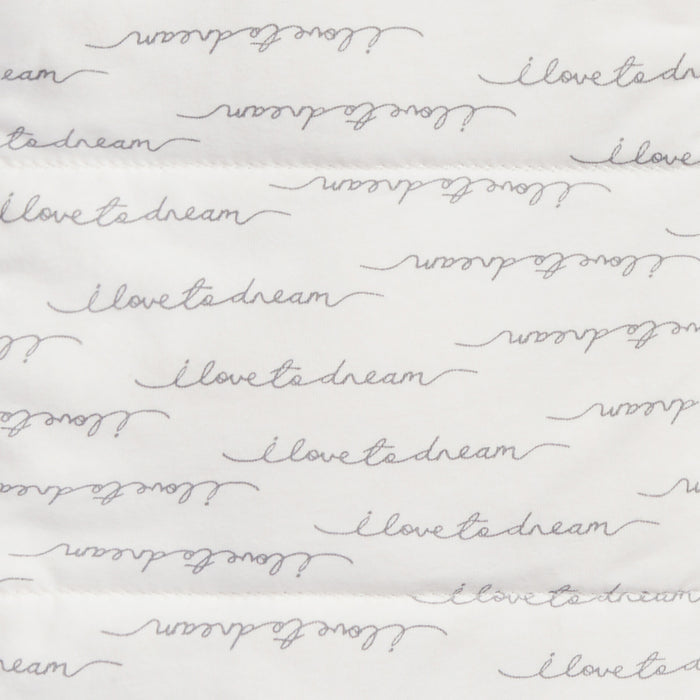 i love to dream
eam
i love to dr
i love to dream
to dream
i love
i love to dream
i love to dream
i love to dream
i love to dream
i lov
i love to dream
i l
i love to dream
dream
i love to
i love to dream
i love to drea
i love to dream
i love to dream
i love to dream
i love to dream
eam
i love to d